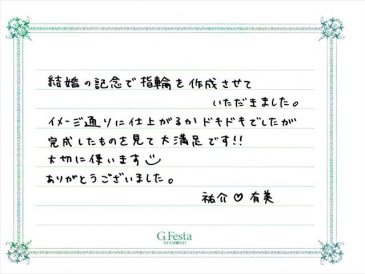 結婚の記念で指輪を作成させて
いただきました。
イメージ通りに仕上がるかドキドキでしたが
完成したものを見て大満足です!!
大切に使います
ありがとうございました。
祐介♡有美
G.Festa
DIAMOND